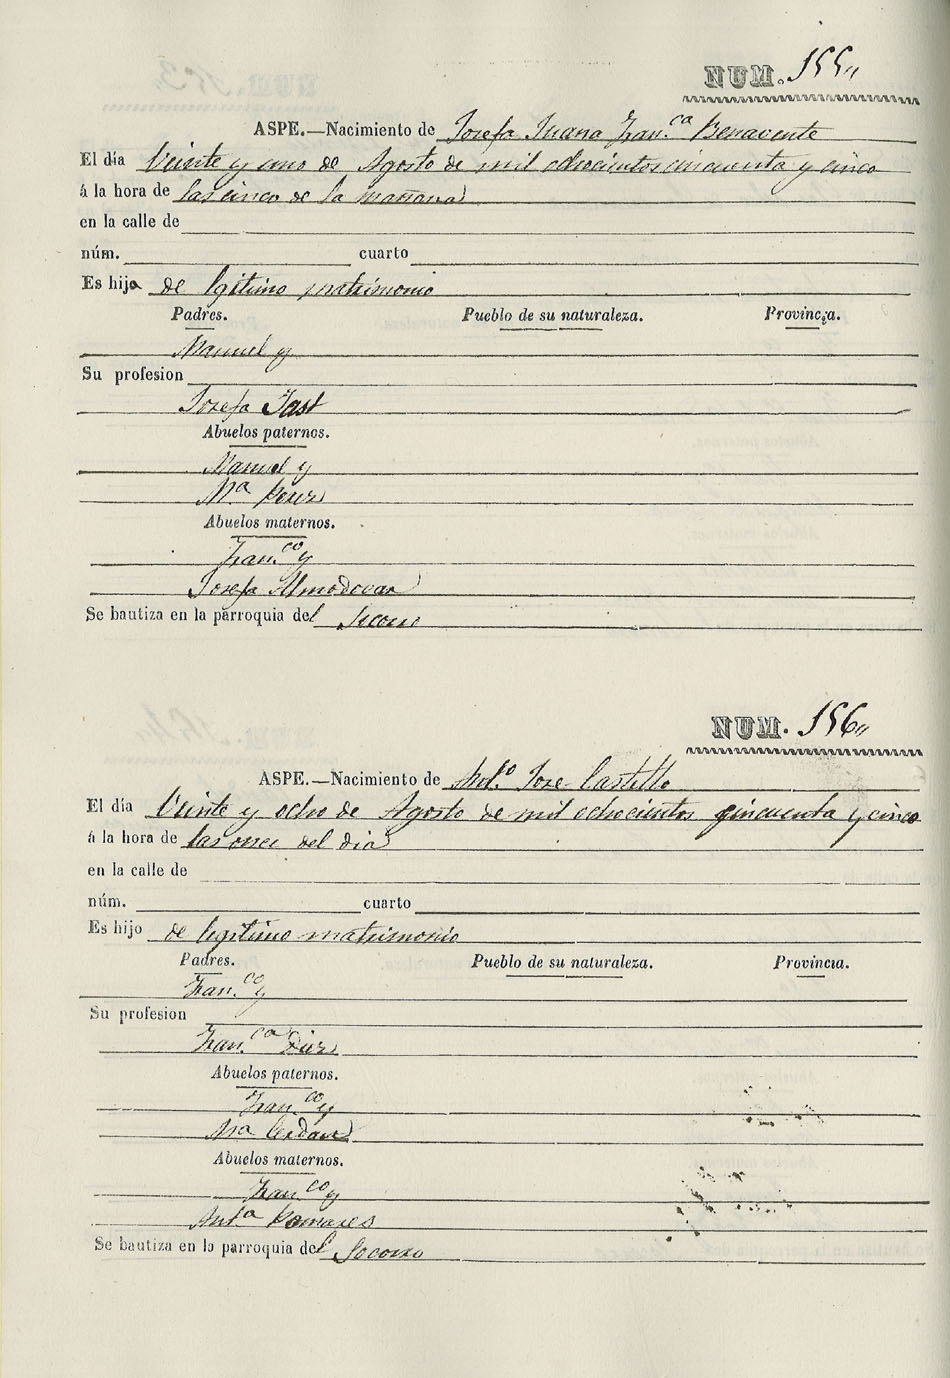 NUM. 155
ASPE.—Nacimiento de Josefa Juana Fran.ca Benavente
El día Veinte y uno de Agosto de mil ochocientos cincuenta y cinco
á la hora de las cinco de la mañana
en la calle de
núm. cuarto
Es hija de legitimo matrimonio
Padres. Pueblo de su naturaleza. Provincia.
Manuel y
Su profesion
Josefa Jast
Abuelos paternos.
Manuel y
Ma Perez
Abuelos maternos.
Fran.co y
Josefa Almodovar
Se bautiza en la parroquia del Socorro
NUM. 156
ASPE.—Nacimiento de Ant.o Jose Castillo
El día Veinte y ocho de Agosto de mil ochocientos cincuenta y cinco
á la hora de las once del dia
en la calle de
núm. cuarto
Es hijo de legitimo matrimonio
Padres. Pueblo de su naturaleza. Provincia.
Fran.co y
Su profesion
Fran.ca Diez
Abuelos paternos.
Fran.co y
Ma Cerdan
Abuelos maternos.
Fran.co y
Ant.a Pomares
Se bautiza en la parroquia del Socorro